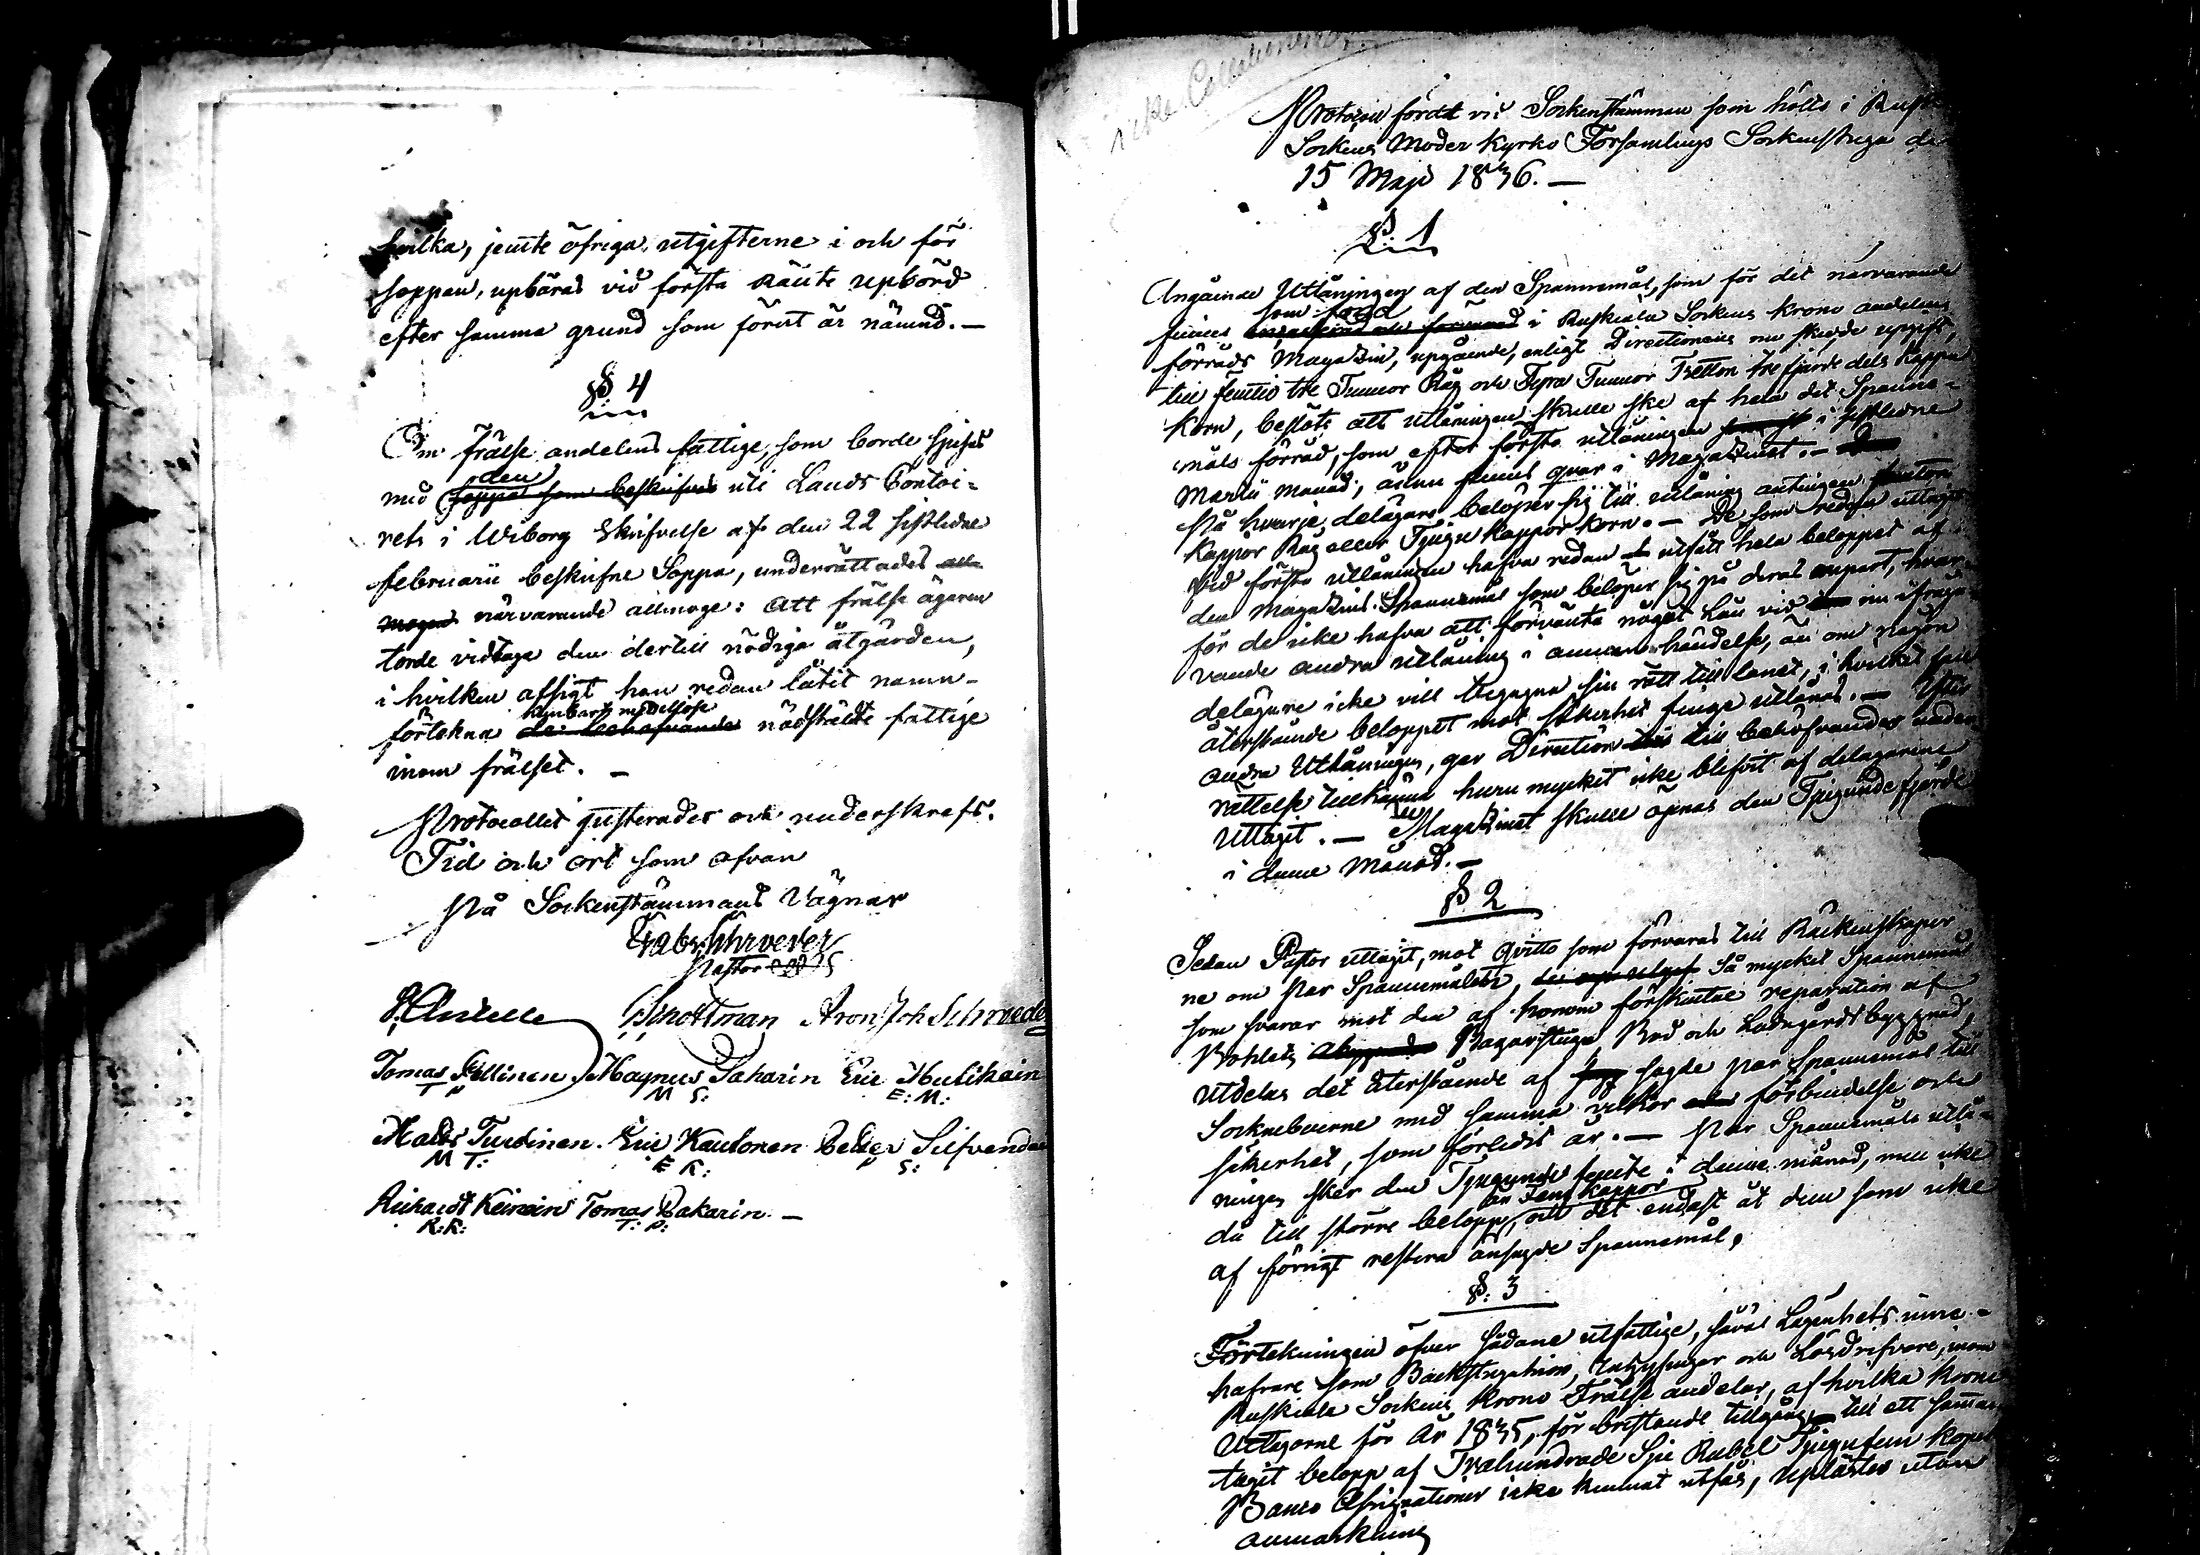 hvilka, jemte öfriga utgifterne i och för
soppan, upbäras vid första Ränte upbörd
efter samma grund som förut är nämnd. —
§. 4
Om frälse andelens fattige, som borde spisas
med den soppa som beskrifves uti Lands Contoi-
rets i Wiborg Skrifvelse af den 22 sistledne
februarii beskrifne Soppa, underrättades all-
mogen närvarande allmoge: att frälse ägaren
torde vidtaga den dertill nödiga åtgärden,
i hvilken afsigt han redan låtit namn-
förtekna de behöfvande kunbart medellöse nödstälde fattige
inom frälset. —
Protocollet justerades och underskrefs.
Tid och ort som ofvan
På Sockenstämmans Vägnar
Pastor
Aron Joh Schroeder
Tomas Pillinen Magnus Saharin Eric Mulikain
T P M S: E: M:
Mats Turdinen. Eric Kaulonen Petter Silfvendoin
M T: E K: P S:
Richardt Keinoin Tomas Pakarin. —
R: K: T: P:
icke
Protocoll fördt vid Sockenstämman som hölls i Rusk
Sockens Moder Kyrko Församlings Sockenstuga de
15 Maji 1836. —
§. 1
Angående Utlåningen af den Spannemål, som för det närvarande
finnes som i Ruskiala Sockens krono andelens
förråds Magazin, upgående, enligt Directionens nu skedde upgift,
till femtio tre Tunnor Råg och Fyra Tunnor Tretton tre fjerde dels kappa
korn, beslöts att utlåningen skulle ske af hela det Spanne-
måls förråd, som efter första utlåningen i sistledne
Martii månad, ännu finnes qvar i Magazinet. —
På hvarje delägare belöper sig till utlåning antingen
kappor Råg eller Tjugu kappor korn. — De som redan uttagit
vid första utlåningen hafva redan utfått hela beloppet af
den Magazins Spannemål som belöper sig på deras anpart, hvar-
för de icke hafva att förvänta något lån vid nu ifråga-
varande andra utlåning i annan händelse, än om någon
delägare icke vill begagna sin rätt till lånet, i hvilket fall
återstående beloppet mot säkerhet finge utlånas. — Efter
andra Utlåningen, ger Direction till behöfvandes under-
rättelse tillkänna huru mycket icke blefvit af delägarene
Uttagit. — Magazinet skulle öpnas den Tjugunde fjerde
i denne Månad. —
§. 2
Sedan Pastor uttagit, mot qvitto som förvaras till Räkenskaper-
ne om Par Spannemålen, Så mycket Spannemål
som svarar mot den af honom förskjutne reparation af
Bohlets Bagarstuga Bod och Ladugårdsbyggnad,
utdelas det återstående af sagde par Spannemål till
Sockneboerne med samma vilkor förbindelse och
säkerhet, som förledit år. — Par Spannemåls utlå-
ningen sker den Tjugunde femte i denne månad, men icke
då till större belopp än Fem kappor, och det endast åt dem som icke
af förrigt restera änsagde Spannemål.
§. 3
Förtekningen öfver sådane utfattige, såväl Lägenhets inne-
hafvare som Backstuguhion, Inhysingar och Lösdrifvare, inom
Ruskiala Sockens Krono Frälse andelar, af hvilka krono
Utlagorne för år 1835, för bristande tillgång till ett samman-
tagit belopp af Trehundrade Sju Rubel Tjugufem kopek
Banco Assignationer icke kunnat utfås, uplästes utan
anmärkning